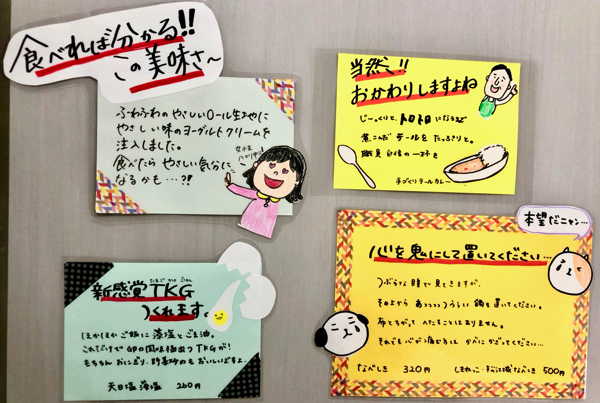 食べれば分かる!!
この美味さ〜
ふわふわのやさしいロール生地に
やさしい味のヨーグルトクリームを
注入しました。
食べたら やさしい気分に
なるかも…?!
当然!!
おかわりしますよね
じーっくりと、トロトロになるまで
煮こんだ テールを たっぷりと。
職員自信の一杯を
手づくりテールカレー
新感覚TKG
たまご かけ ごはん
つくれます。
ほかほか ご飯に 藻塩と ごま油。
これだけで 卵の風味抽出つTKGが!
もちろん おにぎり、野菜炒めも おいしいですよ。
天日塩 藻塩 260円
本望だニャン…
心を鬼にして置いてください…
つぶらな瞳で見てきますが、
そのよから あっつつつうぅい 鍋を置いてください。
布とちがって へたることはありません。
それでも心が痛む方は かべに かざってください…
なべしき 320円
しまねっこ・松江城なべしき 500円